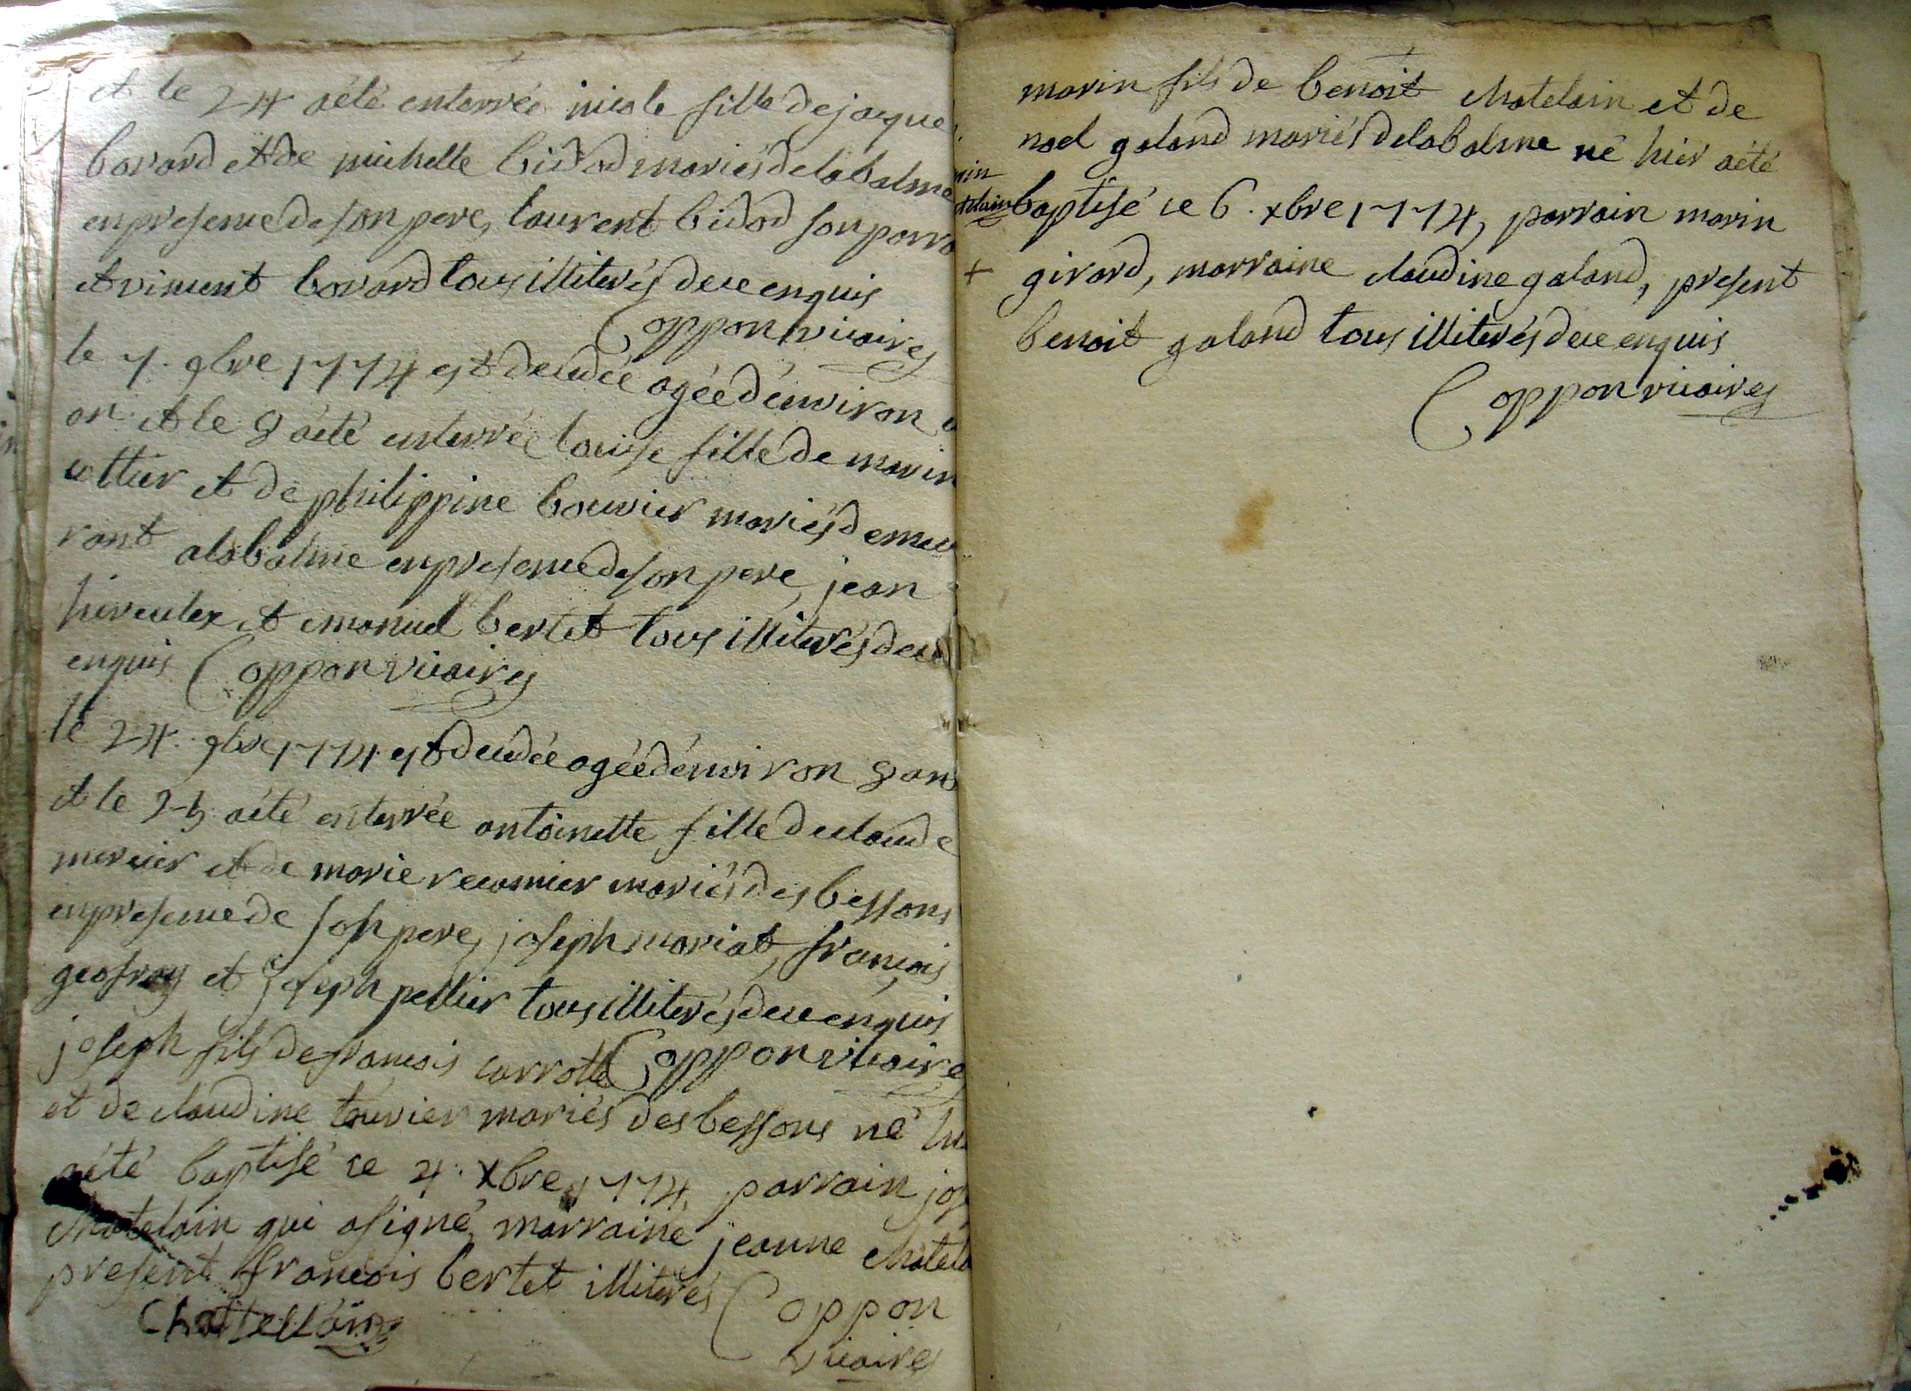 et le 24 aété enterrée nicole fille de jaque
bavard et de michelle bidod mariés delabalme
enpresence deson pere, laurent bidod son parra
et vincent bavard tous illiterés dece enquis
Coppon vicaire
le 7. 9bre 1774 est decedée agée denviron u
an et le 8 aété enterrée louise fille de marin
cottier et de philippine bouvier mariés demeu
rant alabalme enpresence deson pere, jean
hirculex et emanuel bertet tous illiterés dece
enquis Coppon vicaire
le 24. 9bre 1774 est decedée agée denviron 8 ans
et le 25 aété enterrée antoinette fille declaude
mercier et de marie recamier mariés des bessons
enpresence de son pere, joseph mariat, francois
geofray et joseph pellier tous illiterés dece enquis
Coppon vicaire
joseph fils de francois carrotte
et de claudine touvier mariés des bessons né hi
aété baptisé ce 4. xbre 1774, parrain jos
Chatelain qui asigné, marraine jeanne chatela
present francois bertet illiterés Coppon
vicaire
Chattellain
marin fils de benoit chatelain et de
nael galand mariés delabalme né hier aété
rin
telain
baptisé ce 6. xbre 1774, parrain marin
+ girard, marraine claudine galand, present
benoit galand tous illiterés dece enquis
Coppon vicaire